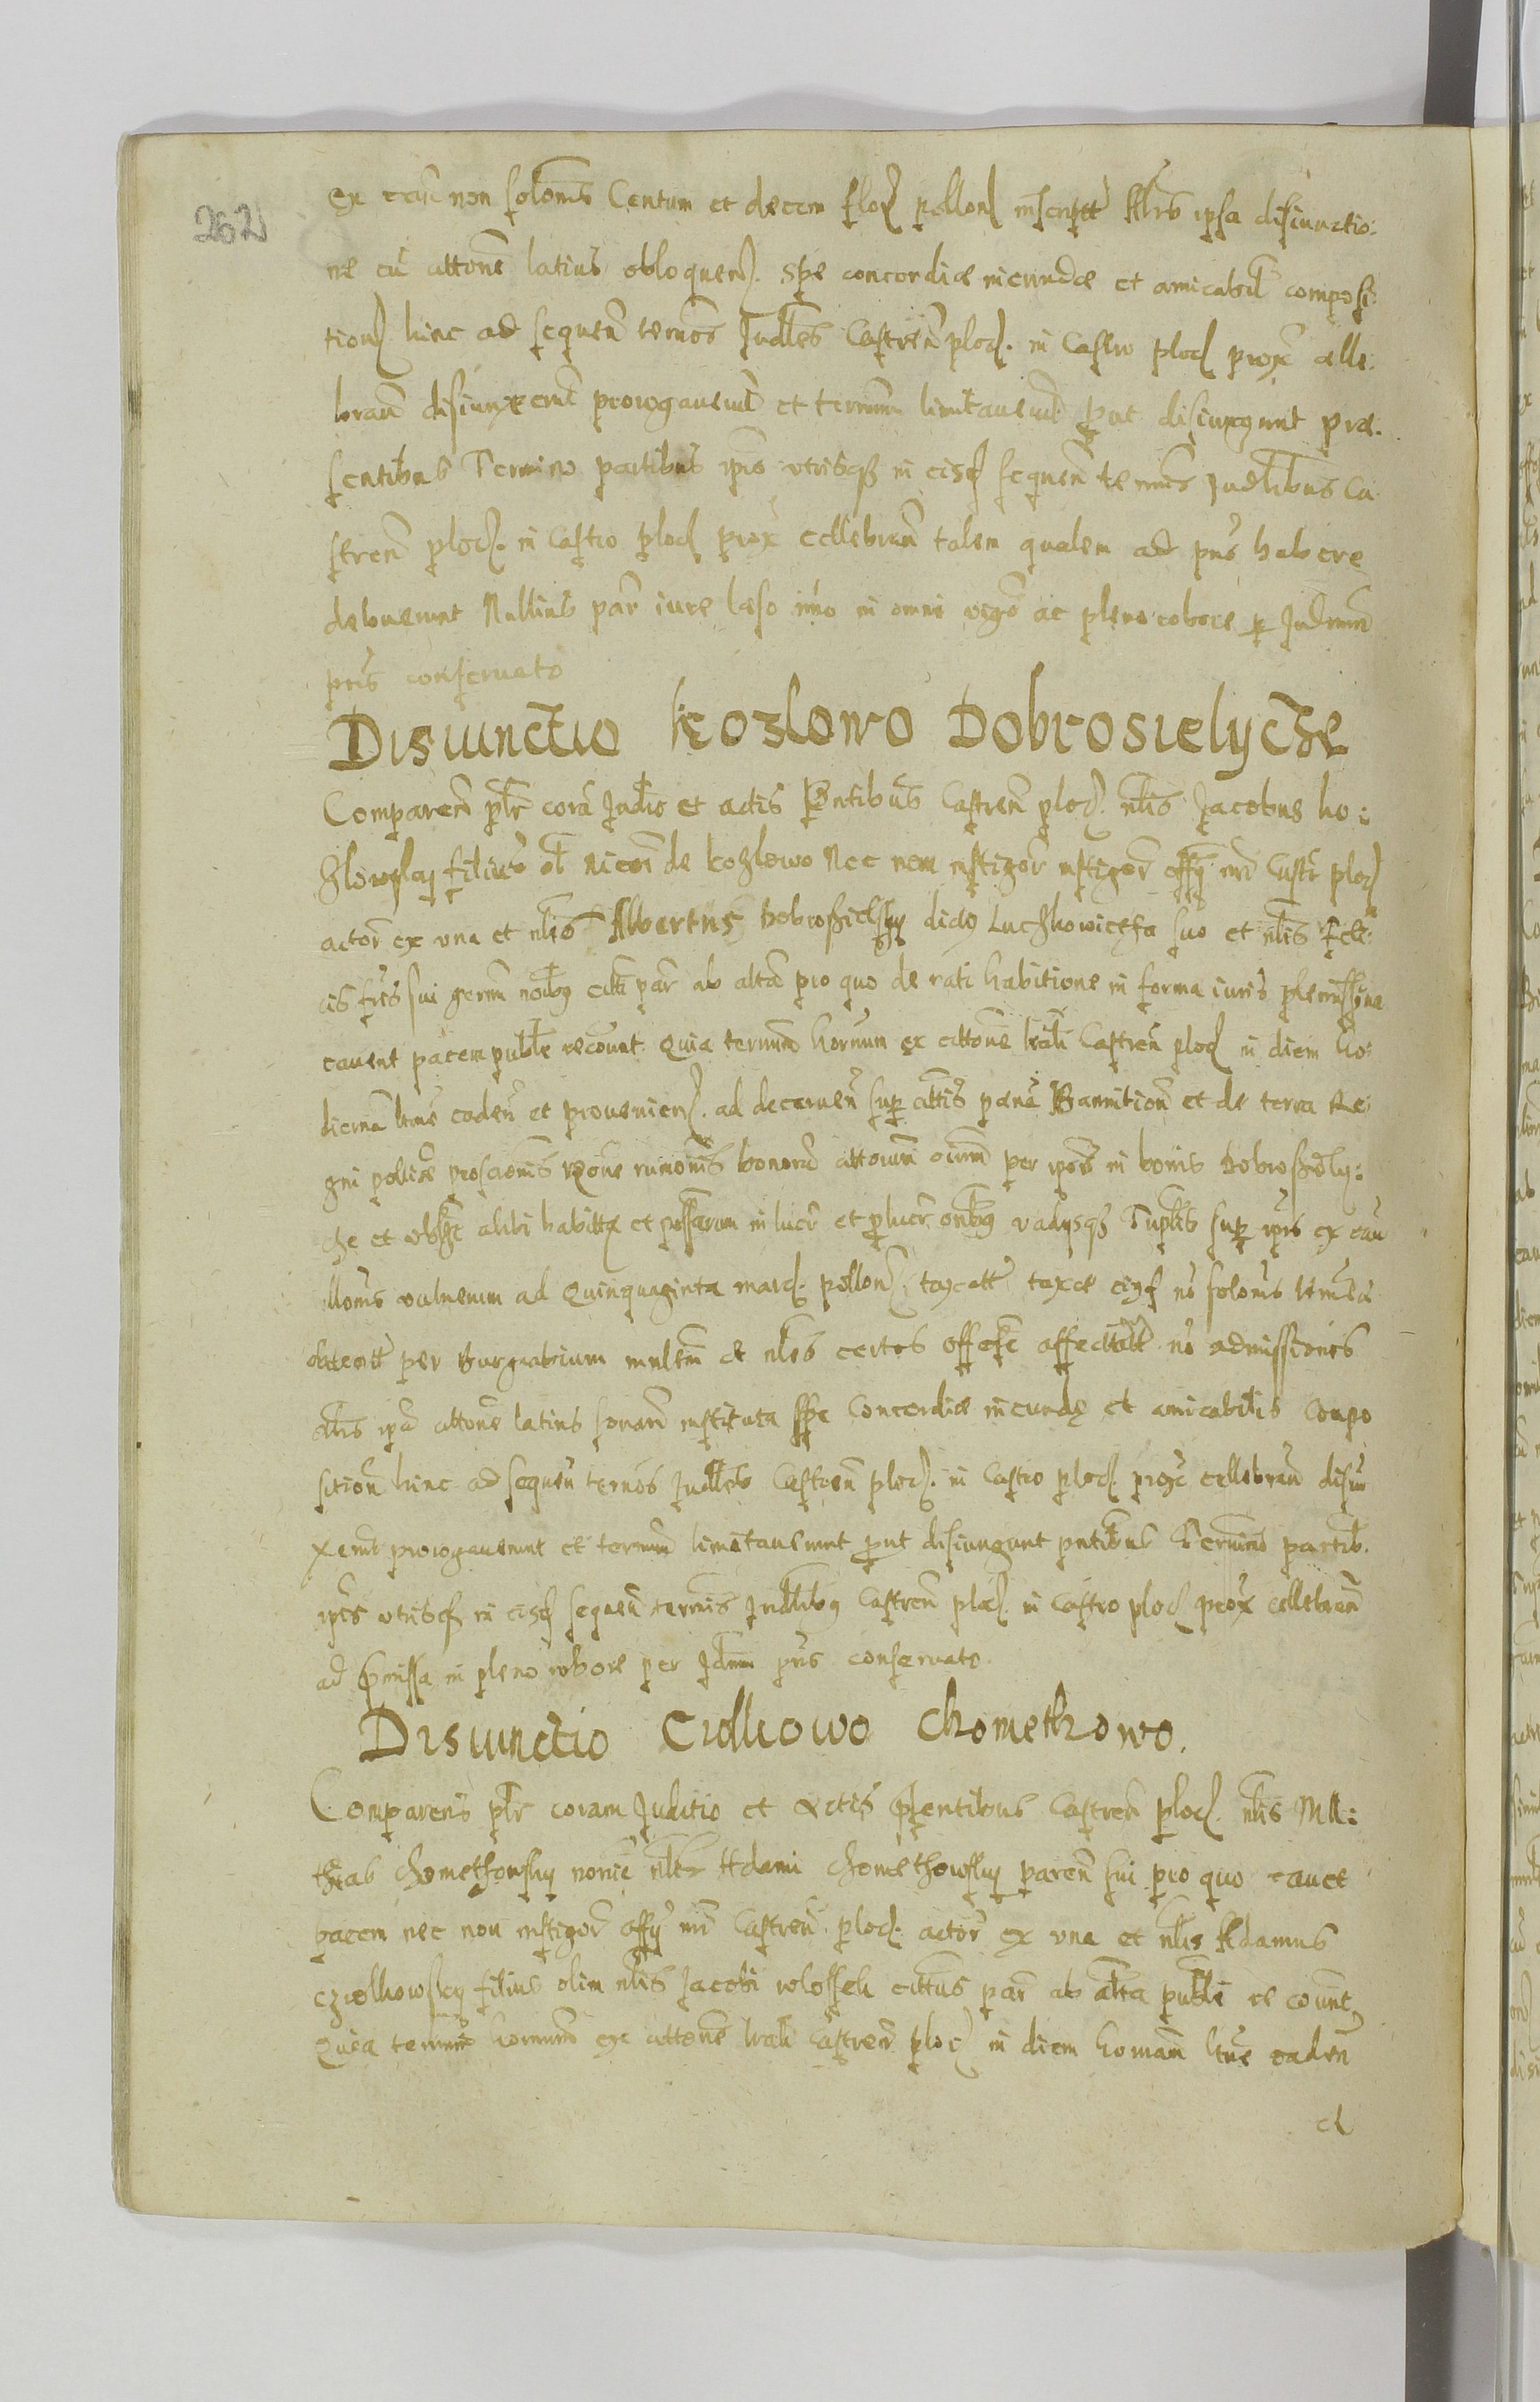 262
ex cau non solonis Centum et decem flor pollon inscriptt Alrs ipsa disiunctio:
ne cu attone latius obloquen. Spe concordiæ ineundæ et amicabil composi:
tion hinc ad sequen termos Judles Castren ploc. in Castro ploc prox celle:
bran disiunxerut prorogaverut et termum limitaverut put disiungunt præ.
sentibus Termino partibus ipsis utrisq in eisd sequen termis Judlibus Ca
stren ploc. in Castro ploc prox cellebran talem qualem ad pns habere
debuerunt Nullius par iure læso imo in omni vigo ac pleno robore p Judium
pns conservato
Disiunctio Kozlowo Dobrosielycze
Comparen plr cora Judio et actis pntibus Castren ploc. nlis Jacobus ko:
zlowsky filius ol Nicoi de kozlowo Nec non instigor instigor offy nri Castr ploc
actor ex una et nlis Albertus Dobrosielsky dictus suo et nlis Feli
cis fris sui germ noibus citti par ab alta pro quo de rati habitione in forma iuris plenissima
cavent pacem puble recount Quia termum hornum ex cittone lrali Castren ploc in diem ho:
dierna lrme caden et provenien. ad decernen sup cittis pæna Bannition et de terra Re
gni pollie proscionis ratione bonoru attorum oium per ipsos in bonis Dobrosiely:
cze et ubiq alibi habitta et possarum in lucr et p lucr onibus vadysq Tuplis sup ipis ex cau
vulnerum ad Quinquaginta marc. pollon. taxatt taxæ eiusd no solonis
obtentt per Burgrabium multm et nles certos offose affectatt no admissionis
Alrs ipa attone latius sonan instituta spe Concordiæ ineundæ et amicabilis Compo
sition hinc ad sequen termos Judles Castren ploc. in Castro ploc. prox cellebran disiun
xerut prorogaverunt et termum limitaverunt put disiungunt pntibus Termino partib.
ipsis utrisq in eisd sequen termis Judlibus Castren ploc. in Castro ploc prox cellebran
ad pmissa in pleno robore per Jdium pns conservato.
Disiunctio Ciolkowo Chometkowo.
Comparens plr coram Juditio et Actis psentibus Castren ploc. nlis Ma:
thias Chomethowsky noie nlis Adami Chomethowsky paren sui pro quo cavet
pacem nec non instigor offy nri Castren ploc. actor ex una et nlis Adamus
Cziolkowsky filius olim nlis Jacobi cittus par ab alta puble recount
Quia termum hornum ex cittone lrali Castren ploc in diem hornam lrme caden
et